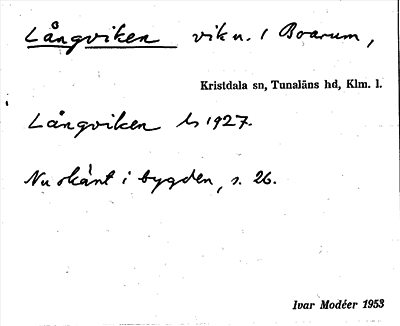 Långviken vik n. / Boarum,
Kristdala sn, Tunaläns hd, Klm. l.
Långviken Ls 1927.
Nu skänt i bygden, s. 26.
Ivar Modéer 1953